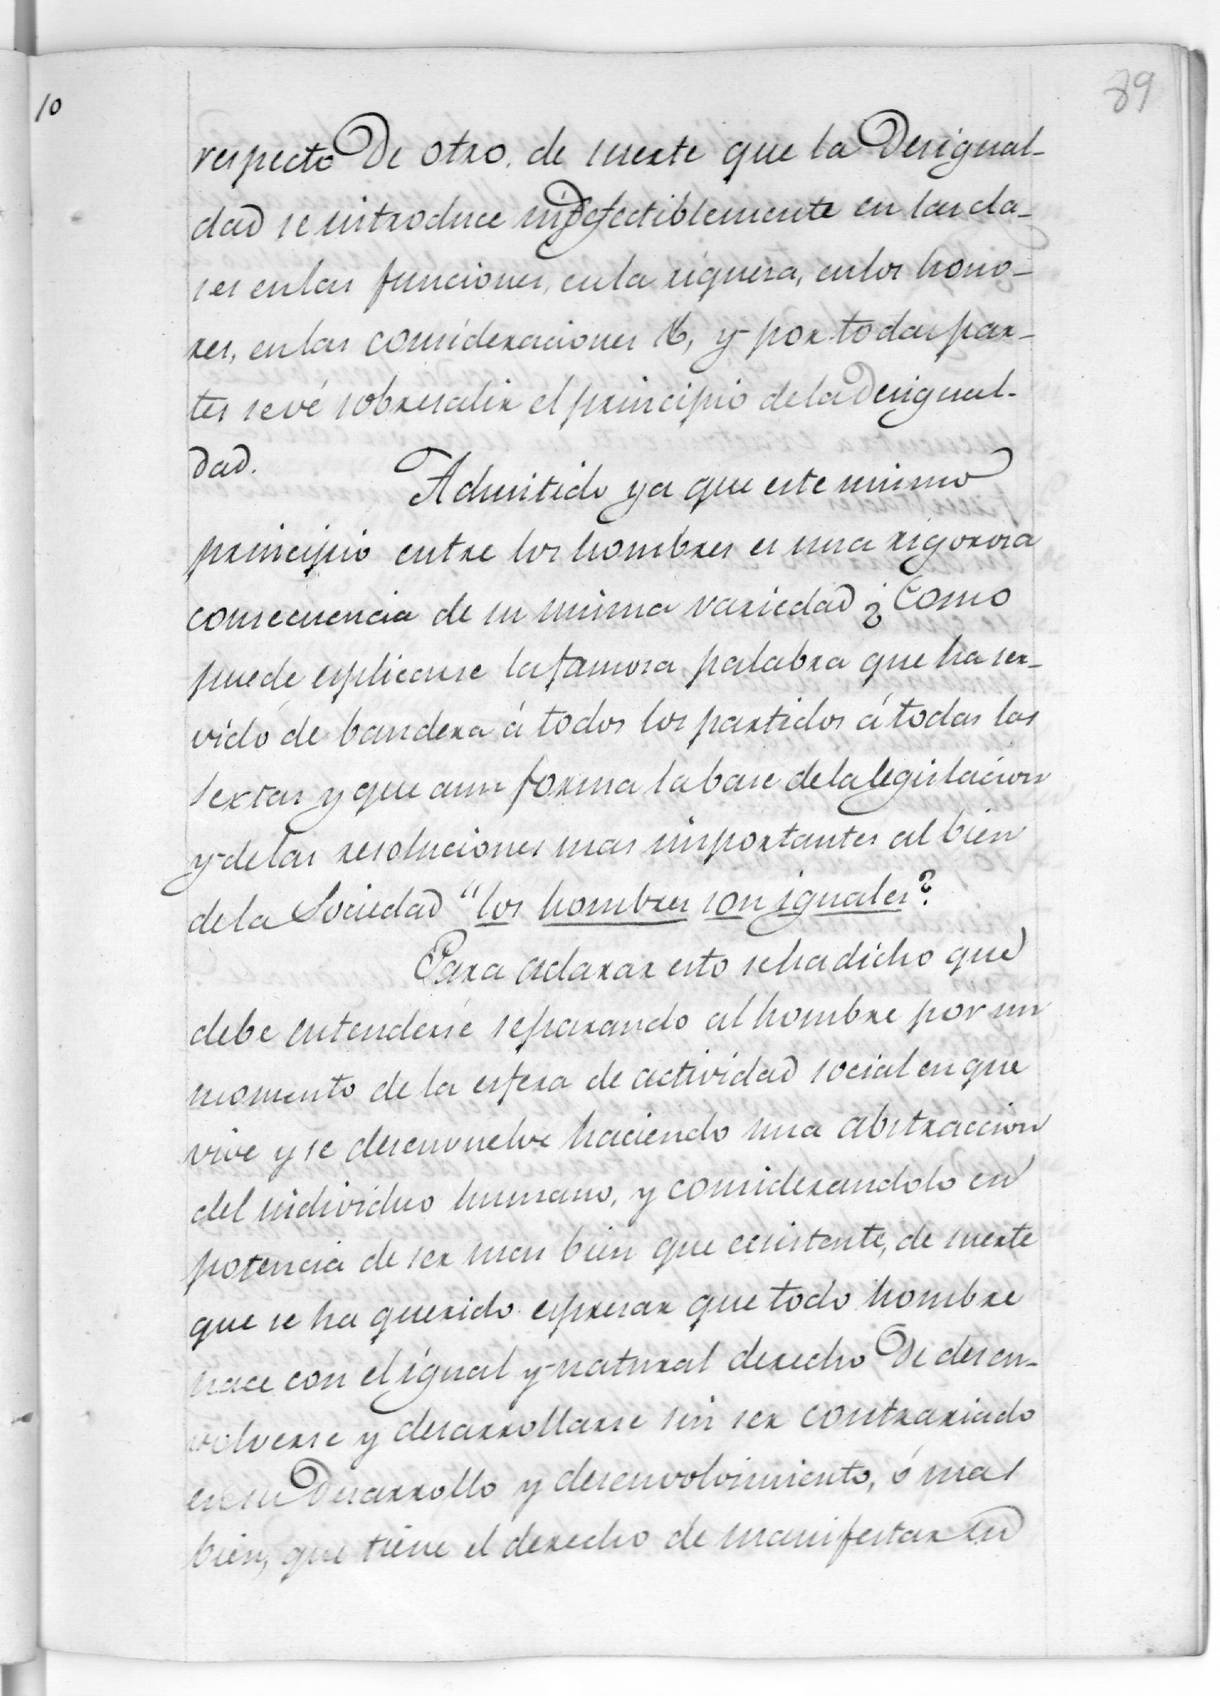 10
89
respecto De otro. de suerte que la Desigual-
dad se introduce indefectiblemente en las cla-
ses en las funciones, en la riquesa, en los hono-
res, en las consideraciones &, y por todas par-
tes se vé sobresalir el principio de la Desigual-
dad.
Admitido ya que este mismo
principio entre los hombres es una rigorosa
consecuencia de su misma variedad ¿Como
puede esplicarse la famosa palabra que ha ser-
vido de bandera á todos los partidos á todas las
sextas y que aun forma la base de la legislacion
y de las resoluciones mas importantes al bien
de la Sociedad "los hombres son iguales?
Para aclarar esto se ha dicho que
debe entenderse separando al hombre por un
momento de la esfera de actividad social en que
vive y se desenvuelve haciendo una abstraccion
del individuo humano, y considerandolo en
potencia de ser mas bien que ecsistente, de suerte
que se ha querido espresar que todo hombre
nace con el igual y natural derecho De desen-
volverse y desarrollarse sin ser contrariado
en su Desarrollo y desenvolvimiento, ó mas
bien, que tiene el derecho de manifestar su